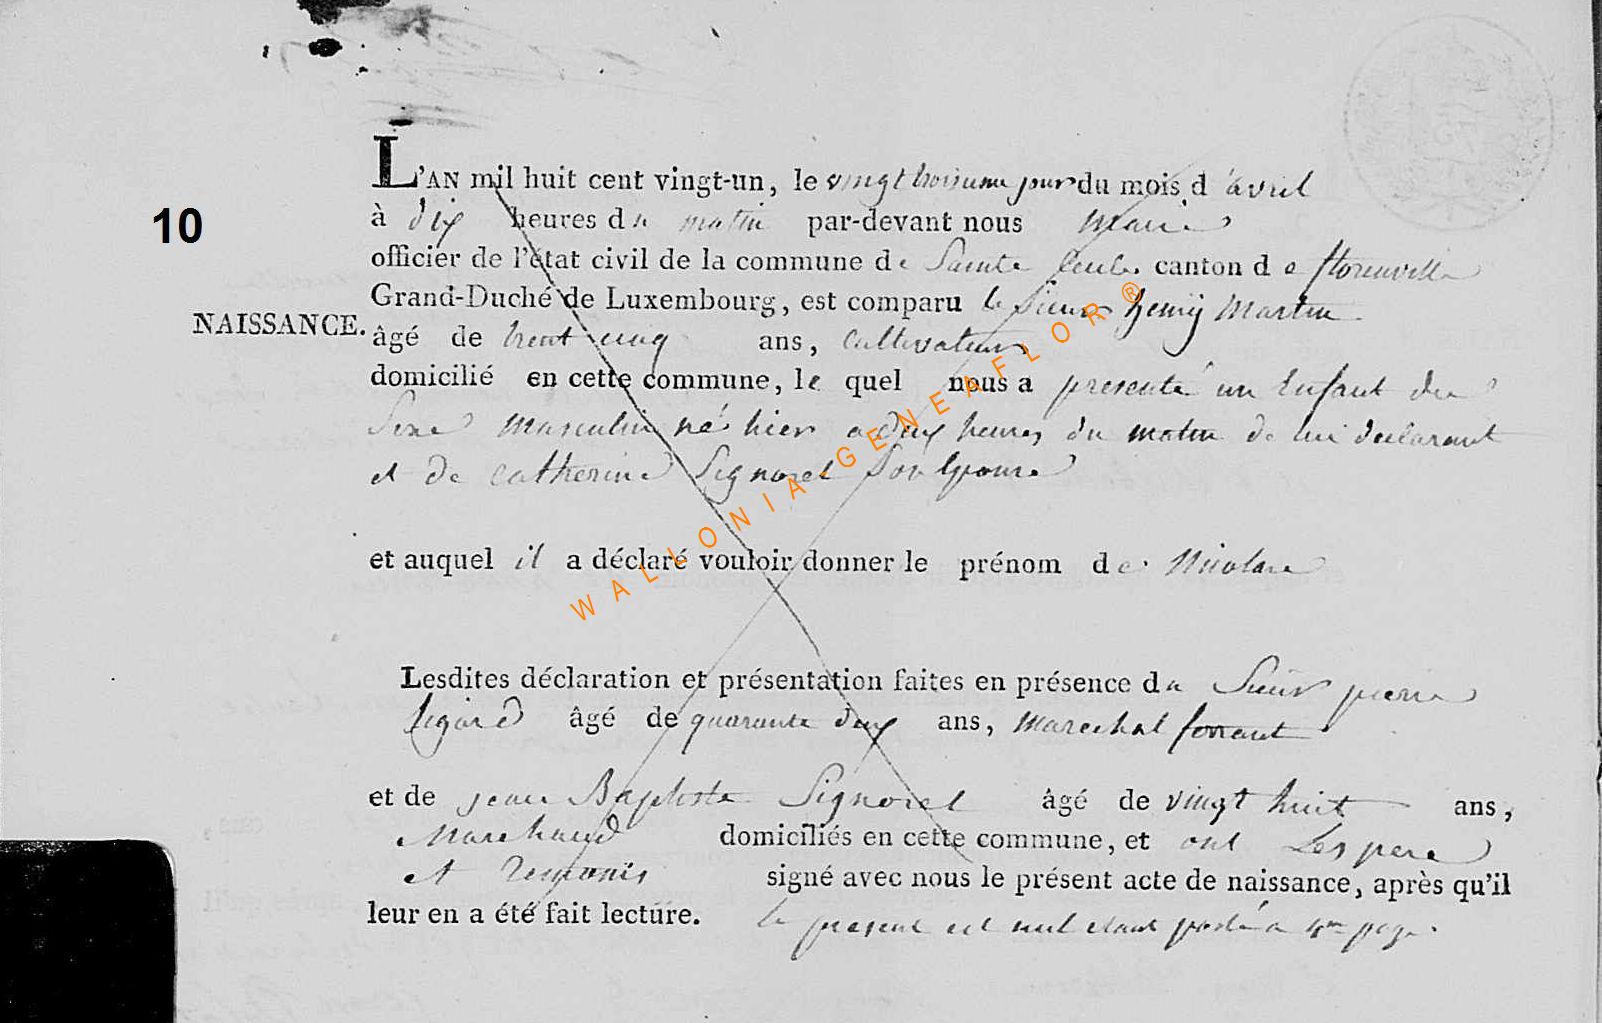 L'AN mil huit cent vingt-un, le vingt troisieme jour du mois d'avril
10
à dix heures du matin par-devant nous Maire
officier de l'état civil de la commune de Sainte Cecile canton de florenville
Grand-Duché de Luxembourg, est comparu le Sieur henry Martin
NAISSANCE.
âgé de trent cinq ans, Cultivateur
domicilié en cette commune, le quel nous a presenté un Enfant du
Sexe masculin né hier a dix heures du matin de lui declarant
et de Catherine Signorel Son Epouse
et auquel il a déclaré vouloir donner le prénom de Nicolas
Lesdites déclaration et présentation faites en présence du Sieur pierre
âgé de quarante deux ans, marechal ferrant
et de jean Baptiste Signorel âgé de vingt huit ans,
Marchand domiciliés en cette commune, et ont Les pere
et temoins signé avec nous le présent acte de naissance, après qu'il
leur en a été fait lecture. le present est nul etant porté a page.
WALLONIA-GENEAFLOR®